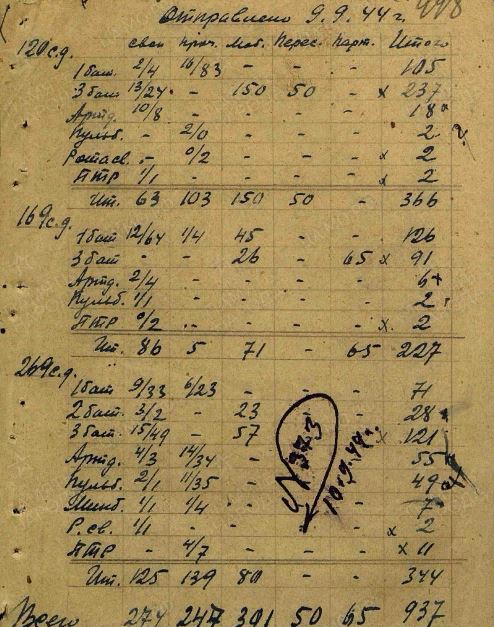 Отправлено 9.9.44 г. 448
свои проч. Моб. Перес. парт. Итого
120 с.д.
1 бат 2/4 16/83 - - - 105
3 бат 13/24 - 150 50 - x 237
Артд. 10/8 - - - - 18
Пульб. - 2/0 - - - 2
Ротасв. - 0/2 - - - x 2
ПТР 1/1 - - - - x 2
Ит. 63 103 150 50 - 366
169 с.д.
1 бат 12/64 1/4 45 - - 126
3 бат - - 26 - 65 x 91
Артд. 2/4 - - - - 6
Пульб. 1/1 - - - - 2
ПТР 0/2 - - - - x 2
Ит. 86 5 71 - 65 227
269 с.д.
1 бат 9/33 6/23 - - - 71
2 бат. 3/2 - 23 - - 28
3 бат 15/49 - 57 - x 121
Артд. 4/3 14/34 - - 55
Пульб. 2/1 11/35 - - 49
Минб. 1/1 1/4 - - 7
Р.св. 1/1 - - - x 2
ПТР - 4/7 - - - x 11
Ит. 125 139 80 - - 344
Всего 274 247 301 50 65 937
N 373
10.9.44 г.